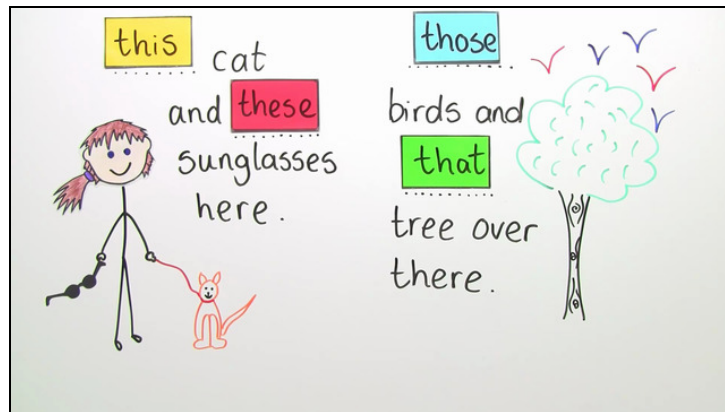 this cat
and these
sunglasses
here.
those
birds and
that
tree over
there.